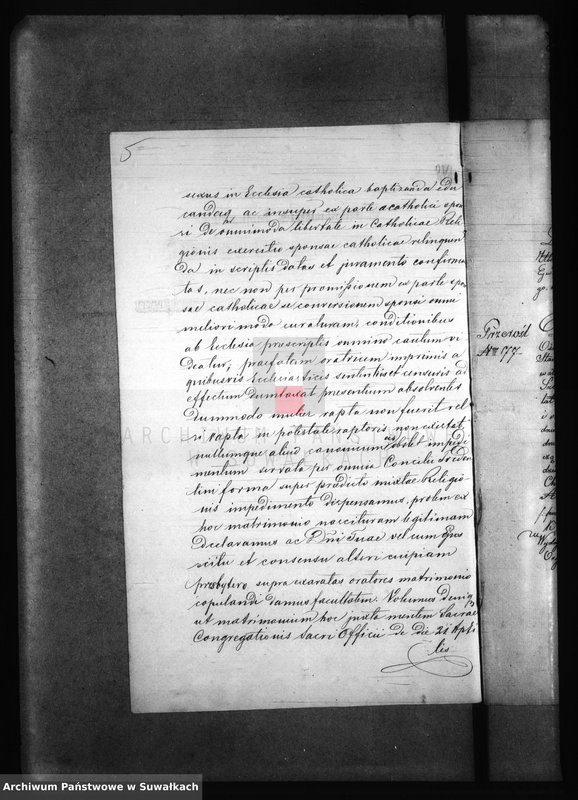 5
sexus in Ecclesia catholica baptizanda edu
candaq ac insuper ex parte acatholici spon
si de omnimoda libertate in Catholicae Reli
gionis exercitio sponsae catholicae relinquen
da in scriptis datas et juramento conforma
tas, nec non per promissionem ex parte spon
sae catholicae se conversionem sponsi omni
meliori modo curaturam, conditionibus
ab Ecclesia prescriptis omnino cautum vi
deatur, praefatam oratricem imprimis a
quibusvis Ecclesiasticis sententiis et censuris ad
effectum dumtaxat presentium absolventes
Dummodo mulier rapta non fuerit vel
si rapta in potestate raptoris non existat
nullumque aliud canonicum eis obstet impedi
mentum servata per omnia Concilii Triden
tini forma super predicto mixtae Religio
nis impedimento dispensamus, prolem ex
hoc matrimonio nascituram legitimam
Declaramus ac Dni Tuae vel cum Ejus
scitu et consensu alteri cuipiam
presbytero supra exaratos oratores matrimonio
copulandi damus facultatem. Volumus deniq
ut matrimonium hoc juxta mentem Sacrae
Congregationis Sacri Officii de die 21 Apri
lis
Przezwól
No 177
ARCHIWUM PAŃSTWOWE
Archiwum Państwowe w Suwałkach